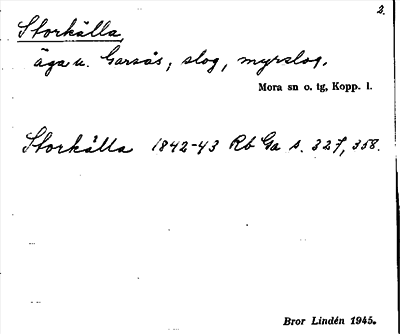 2.
Storkälla,
äga u. Garsås; slog, myrslog.
Mora sn o. tg, Kopp. l.
Storkälla 1842-43 Rb Ga s. 327, 358.
Bror Lindén 1945.